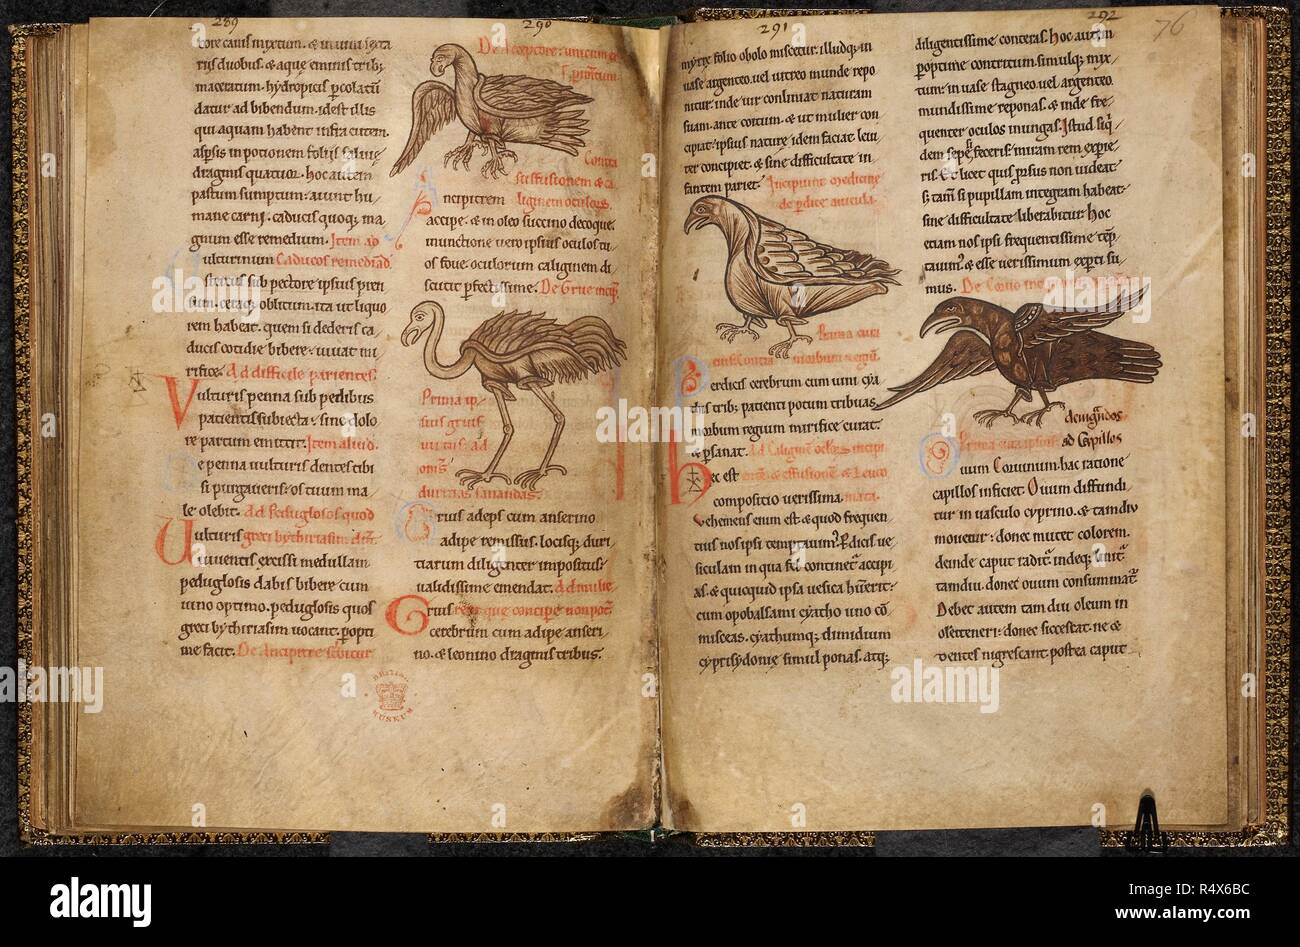 289
core canis mixtum. & in una sexta
riis duobus. & aque eminis trib;
maceratum. hydropicis percolatū
datur ad bibendum. id est illis
qui aquam habent infra cutem.
aspsis in potionem foliis
dragmis quatuor. hoc autem
pastum sumptum. aiunt hu
mane carni. caducis quoq; ma
gnum esse remedium. Item ap
uulturinum Caducos remediad.
sub pectore ipsius pren
sum. ceraq; oblitum. ita ut liquo
rem habeat. quem si dederis ca
ducis cotidie bibere. uiuat mi
rifice. Ad difficile parientes.
Vulturis penna sub pedibus
patientis subiecta. sine dolo
re partum emittet. Item aliud.
e penna uulturis dentes tibi
si purgaueris. os tuum ma
le olebit. Ad Peduglosos quod
Uulturis greci bythiriasim dnt.
uiuentis excissi medullam
peduglosis dabis bibere cum
uino optimo. peduglosis quos
greci bythiriasim uocant. p opti
me facit. De Ancipitre scibitur
290
De Accipitre. unicum e
Contra
suffusionem & ca
liginem oculores.
Ancipitrem
accipe. & in oleo succino decoque.
inunctione uero ipsius oculos tu
os foue. oculorum caliginem di
scutit perfectissime. De Grue incip.
Prima ip
sius gruis
uirtus. ad
omis
duritias sanandas.
Gruis adeps cum anserino
adipe remissus. locisq; duri
tiarum diligenter impositus
ualidissime emendat. Ad mulie
Gruis rem que concipe non pot
cerebrum cum adipe anseri
no. & leonino dragmis tribus.
BRITISH
MUSEUM
291
myrte folio obolo miscetur. illudq; in
uase argenteo. uel uitreo munde repo
nitur. inde uir conliniat naturam
suam. ante coitum. & ut mulier con
cipiat. ipsius nature idem faciat. leui
ter concipiet. & sine difficultate in
fantem pariet. Incipiunt medicine
de perdice auicula.
Prima cura
morbum regiū.
Perdicis cerebrum cum uini cya
this trib; patienti potum tribuas.
morbum regium mirifice curat.
& p sanat. Ad Caligine oclos incipi
hec est
compositio uerissima. macu
Vehemens enim est. & quod frequen
tius nos ipsi temptauim. Perdicis ue
siculam in qua fel continet accipi
as. & quicquid ipsa uesica habuerit
cum opobalsami cyatho uno cō
misceas. cyathumq; dimidium
cyprisydonie simul ponas. atq;
292
76
diligentissime conteras. Hoc autem
p optime contritum. simulq; mix
tum. in uase stagneo. uel argenteo.
mundissime reponas. & inde fre
quenter oculos inungas. Istud siqi
dem sepe feceris. miram rem experie
ris. Et licet quis prsus non uideat
& tam si pupillam integram habeat.
sine difficultate liberabitur. hoc
etiam nos ipsi frequentissime tep
tauim. & esse uerissimum experti su
mus.
denigrandos
ad Capillos
Prima cura ipsius
Ouum Coruinum. hac ratione
capillos inficiet. Ouum diffundi
tur in uasculo cyprino. & tamdiu
mouetur. donec mutet colorem.
deinde caput radit. indeq; unit
tamdiu. donec ouum consummat
Debet autem tam diu oleum in
ore teneri. donec siccescat. ne &
dentes nigrescant. postea caput
alamy
Image ID: R4X6BC
www.alamy.com